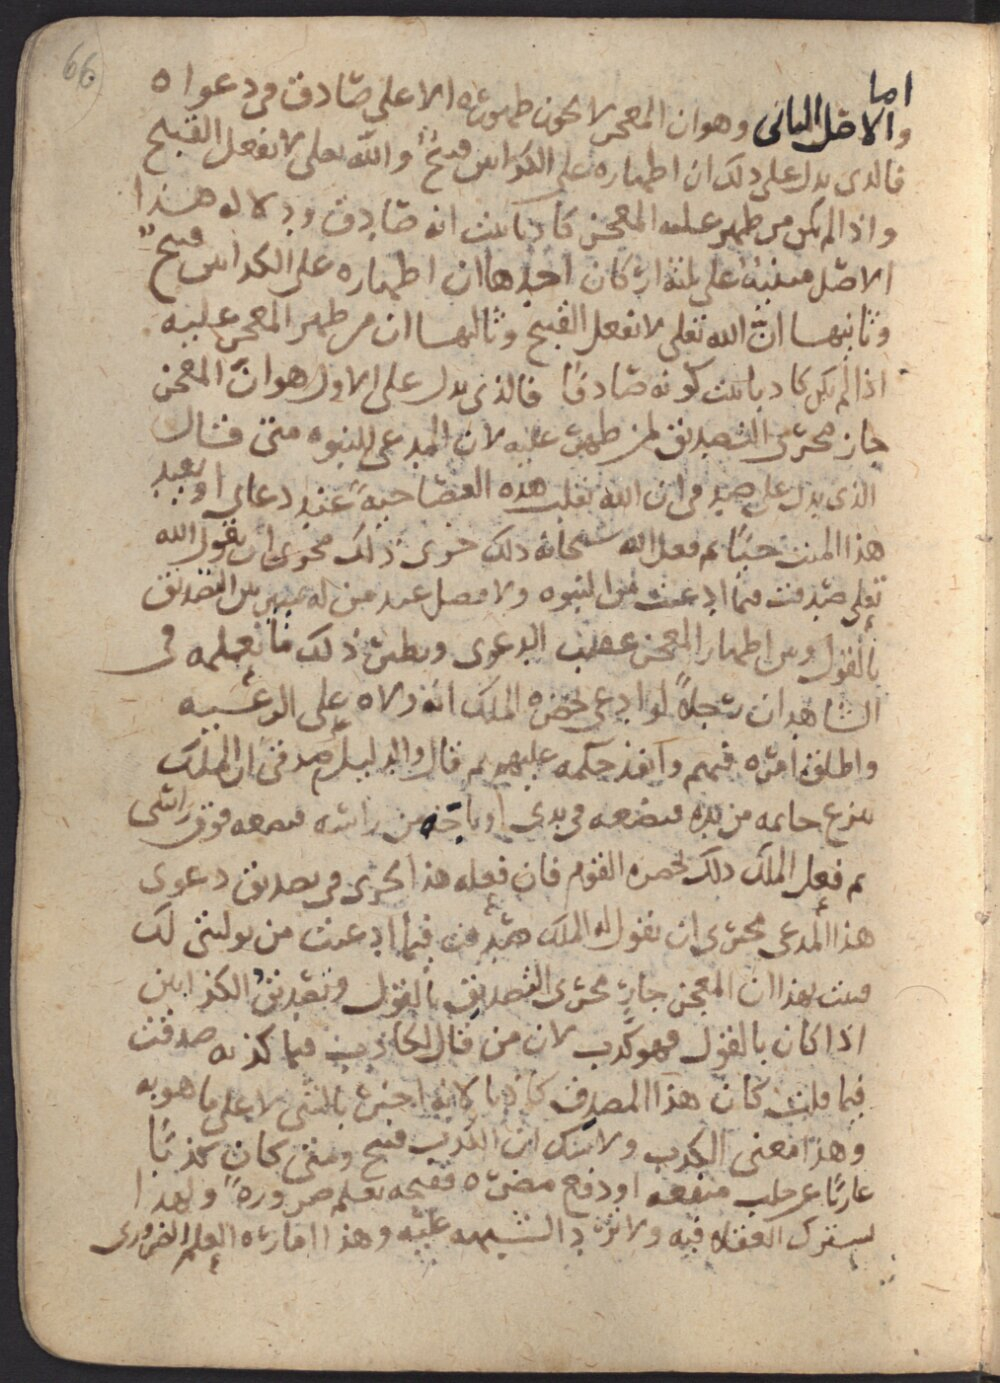 66
اما
والاصل الثاني وهو ان المعجز لا يجوز ظهوره الا على صادق في دعواه
فالذي يدل على ذلك ان اظهاره على الكذابين قبيح والله تعلى لا يفعل القبيح
واذا لم يكن من ظهر عليه المعجز كاذبا ثبت انه صادق ودلاله هذا
الاصل مبنية على ثلثة اركان احدها ان اظهاره على الكذابين قبيح
وثانيها ان الله تعلى لا يفعل القبيح وثالثها ان من ظهر المعجز عليه
اذا لم يكن كاذبا ثبت كونه صادقا فالذي يدل على الاول هو ان المعجز
جار مجرى التصديق لمن ظهر عليه لان المدعي للنبوه متى قال
الذي يدل على صدقي ان الله يقلب هذه العصا حية عند دعاي او يعيد
هذا الميت حيا ثم فعل الله سبحانه ذلك جرى ذلك مجرى ان يقول الله
تعلى صدقت فيما ادعيت من النبوه ولا فصل عند من له عيبر بين التصديق
بالقول وبين اظهار المعجز عقيب الدعوى ونظير ذلك ما نعلمه في
الشاهد ان رجلا لو ادعى بحضره الملك انه ولاه على الرعيه
واطلق امره فيهم وانفذ حكمه عليهم ثم قال والدليل صدقي ان الملك
ينزع خاتمه من يده فيضعه في يدي او تاجه من راسه فيضعه فوق راسي
ثم فعل الملك ذلك بحضره القوم فان فعله هذا يجري في تصديق دعوى
هذا المدعي مجرى ان يقول له الملك صدقت فيما ادعيت من توليتي لك
فثبت بهذا ان المعجز جار مجرى التصديق بالقول وتصديق الكذابين
اذا كان بالقول فهو كذب لان من قال لكاذب فيما كذبه صدقت
فيما قلت كان هذا المصدق كاذبا لانه اخبر بالشي لا على ما هو به
وهذا معنى الكذب ولا شك ان الكذب قبيح ومتى كان كذبا
عاريا عن جلب منفعه او دفع مضره فقبحه يعلم ضرورة ولهذا
يشترك العقلاء فيه ولا ترد الشبهه عليه وهذا اماره العلم الضروري